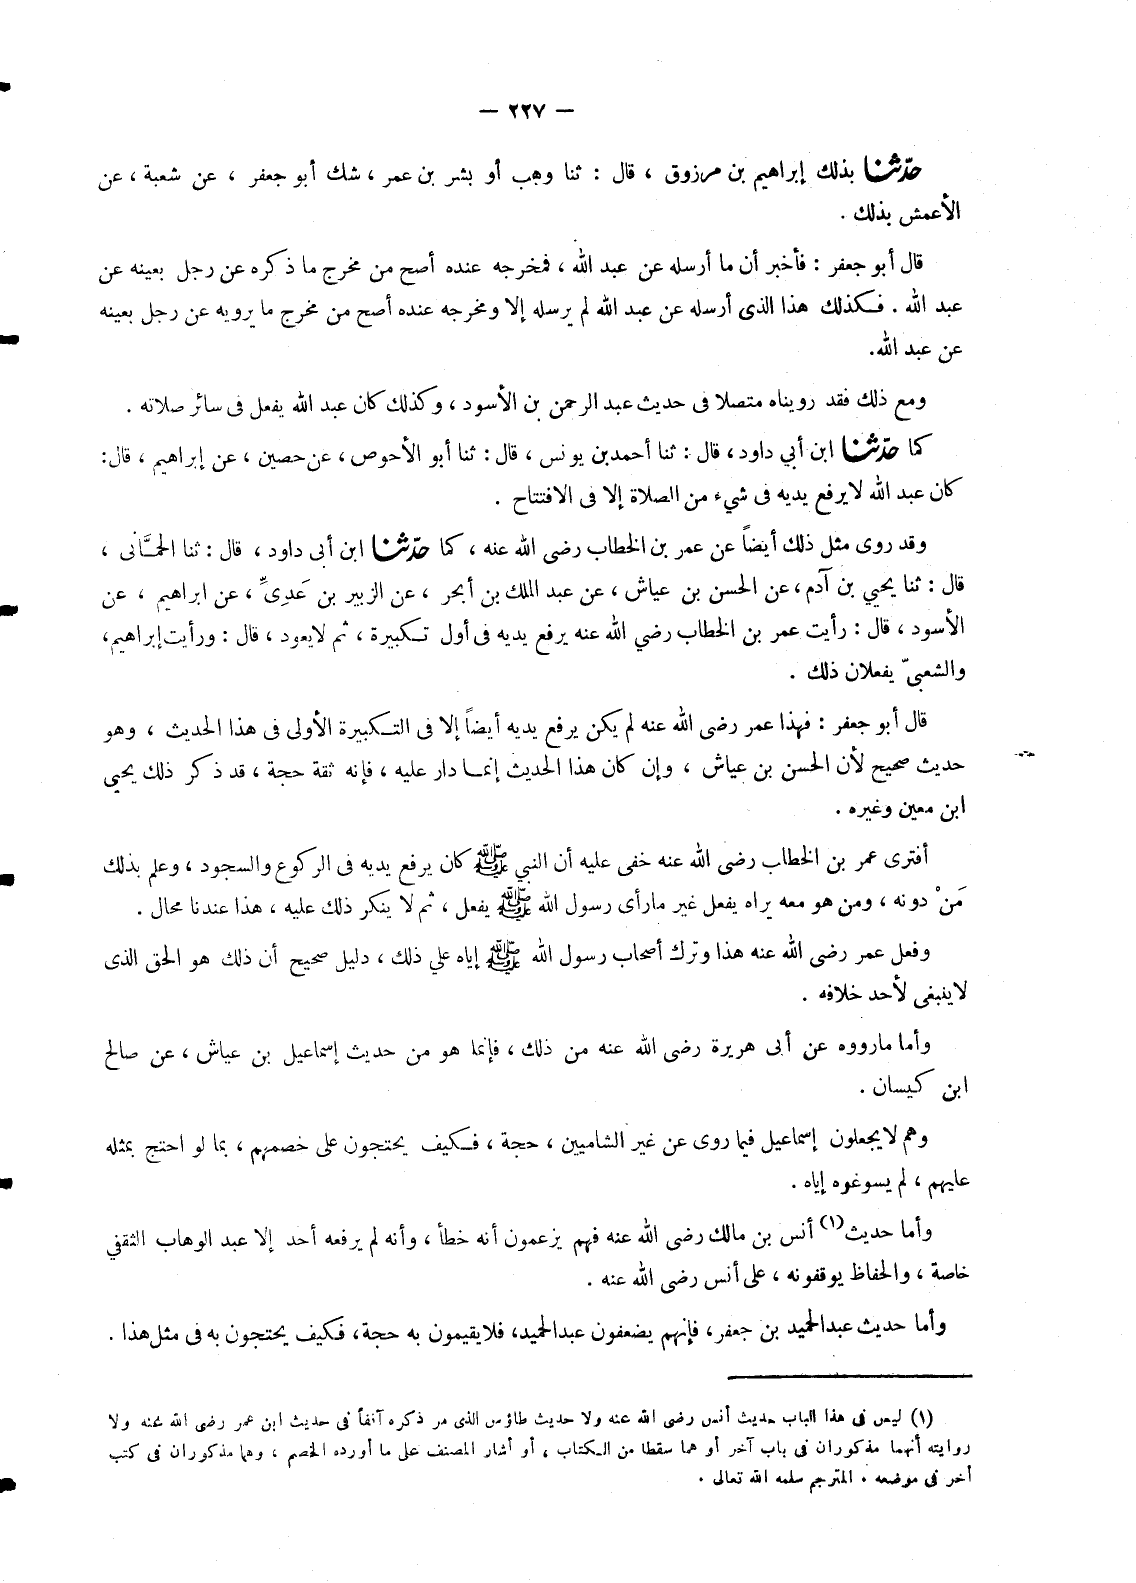 — ٢٢٧ —
حدّثنا بذلك إبراهيم بن مرزوق ، قال : ثنا وهب أو بشر بن عمر ، شك أبو جعفر ، عن شعبة ، عن
الأعمش بذلك .
قال أبو جعفر : فأخبر أن ما أرسله عن عبد الله ، فمخرجه عنده أصح من مخرج ما ذكره عن رجل بعينه عن
عبد الله . فكذلك هذا الذى أرسله عن عبد الله لم يرسله إلا ومخرجه عنده أصح من مخرج ما يرويه عن رجل بعينه
عن عبد الله.
ومع ذلك فقد رويناه متصلا فى حديث عبد الرحمن بن الأسود ، وكذلك كان عبد الله يفعل فى سائر صلاته .
كما حدّثنا ابن أبي داود ، قال : ثنا أحمد بن يونس ، قال : ثنا أبو الأحوص ، عن حصين ، عن إبراهيم ، قال:
كان عبد الله لا يرفع يديه فى شيء من الصلاة إلا فى الافتتاح .
وقد روى مثل ذلك أيضاً عن عمر بن الخطاب رضى الله عنه ، كما حدّثنا ابن أبى داود ، قال : ثنا الحمَّانى ،
قال : ثنا يحيي بن آدم ، عن الحسن بن عياش ، عن عبد الملك بن أبحر ، عن الزبير بن عَدِىٍّ ، عن ابراهيم ، عن
الأسود ، قال : رأيت عمر بن الخطاب رضي الله عنه يرفع يديه فى أول تكبيرة ، ثم لا يعود ، قال : ورأيت إبراهيم،
والشعبىّ يفعلان ذلك .
قال أبو جعفر : فهذا عمر رضى الله عنه لم يكن يرفع يديه أيضاً إلا فى التكبيرة الأولى فى هذا الحديث ، وهو
حديث صحيح لأن الحسن بن عياش ، وإن كان هذا الحديث إنما دار عليه ، فإنه ثقة حجة ، قد ذكر ذلك يحيى
ابن معين وغيره .
أفترى عمر بن الخطاب رضى الله عنه خفى عليه أن النبي ﷺ كان يرفع يديه فى الركوع والسجود ، وعلم بذلك
مَنْ دونه ، ومن هو معه يراه يفعل غير ما رأى رسول الله ﷺ يفعل ، ثم لا ينكر ذلك عليه ، هذا عندنا محال .
وفعل عمر رضى الله عنه هذا وترك أصحاب رسول الله ﷺ إياه على ذلك ، دليل صحيح أن ذلك هو الحق الذى
لا ينبغى لأحد خلافه .
وأما ما رووه عن أبى هريرة رضى الله عنه من ذلك ، فإنما هو من حديث إسماعيل بن عياش ، عن صالح
ابن كيسان .
وهم لا يجعلون إسماعيل فيما روى عن غير الشاميين ، حجة ، فكيف يحتجون على خصمهم ، بما لو احتج بمثله
عليهم ، لم يسوغوه إياه .
وأما حديث(١) أنس بن مالك رضى الله عنه فهم يزعمون أنه خطأ ، وأنه لم يرفعه أحد إلا عبد الوهاب الثقفي
خاصة ، والحفاظ يوقفونه ، على أنس رضى الله عنه .
وأما حديث عبد الحميد بن جعفر، فإنهم يضعفون عبد الحميد، فلا يقيمون به حجة، فكيف يحتجون به فى مثل هذا .
(١) ليس فى هذا الباب حديث أنس رضى الله عنه ولا حديث طاؤس الذى مر ذكره آنفاً فى حديث ابن عمر رضى الله عنه ولا
روايته أنهما مذكوران فى باب آخر أو هما سقطا من الكتاب ، أو أشار المصنف على ما أورده الخصم ، وهما مذكوران فى كتب
أخر فى موضعه . المترجم سلمه الله تعالى .